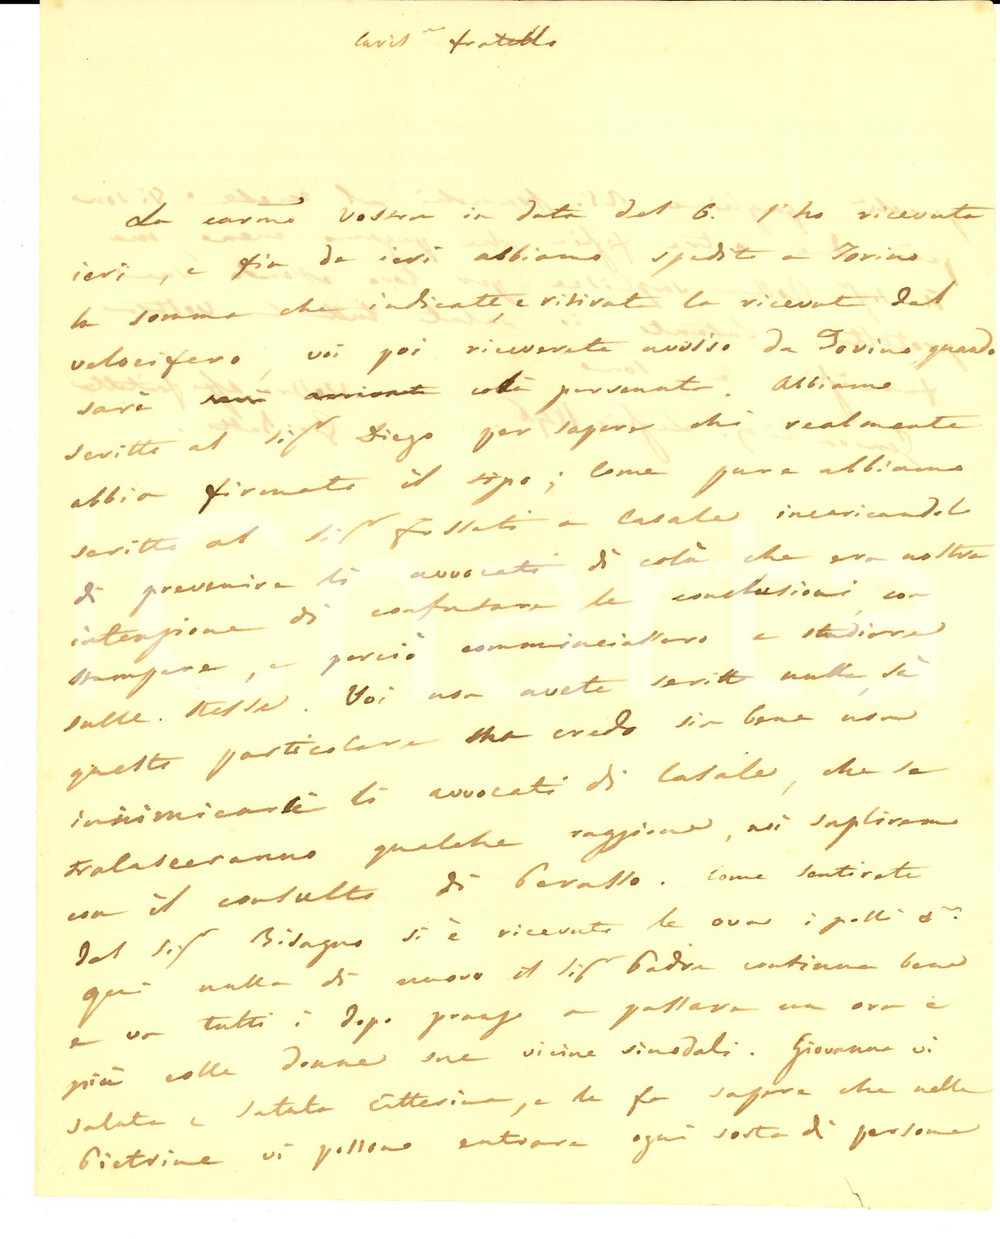 Cariss.mo fratello
La carma Vostra in data del 6. l'ho ricevuta
ieri, e fin da ieri abbiamo spedito a Torino
la somma che indicate, e ritirat la ricevut dal
velocifero, voi poi riceverete avviso da Torino, quando
sarà colà pervenuta. Abbiamo
scritto al Sigr Diego per sapere chi realmente
abbia firmato il tipo; Come pure abbiamo
scritto al Sigr Fossati a Casale incaricandolo
di prevenire li avvocati di colà che era nostra
intenzione di confutare le conclusioni, con
stampare, e perciò comminciassero a studiare
sulle stesse. Voi non avete scritto nulla, sù
questo particolare ma credo sia bene non
innimicarsi li avvocati di Casale, che se
tralasceranno qualche raggione, noi supliremo
con il consulto di Perasso. Come sentirete
dal Sigr Bisagno si è ricevuto le ova i polli &.
Qui nulla di nuovo il Sigr Padre continua bene
e va tutti i dopo pranzo a passare un ora e
più colle donne sue vicine sinodali. Giovanna vi
saluta e saluta Catterina, e le fa sapere che nelle
Pietrine vi possono entrare ogni sorta di persone